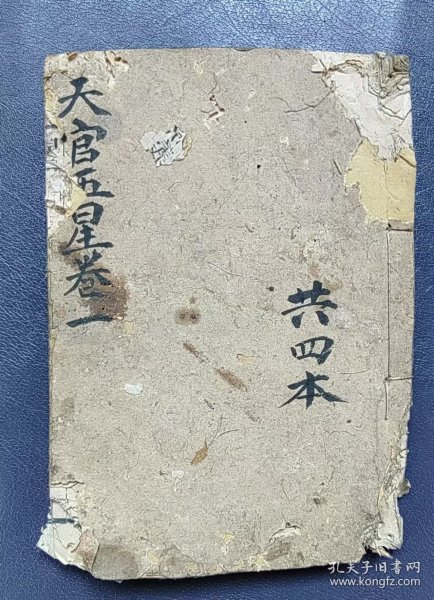 天官五星卷一
共四本
孔夫子旧书网
www.kongfz.com